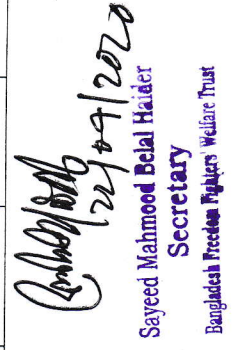 22/07/2020
Sayeed Mahmood Belal Haider
Secretary
Bangladesh Freedom Fighters' Welfare Trust